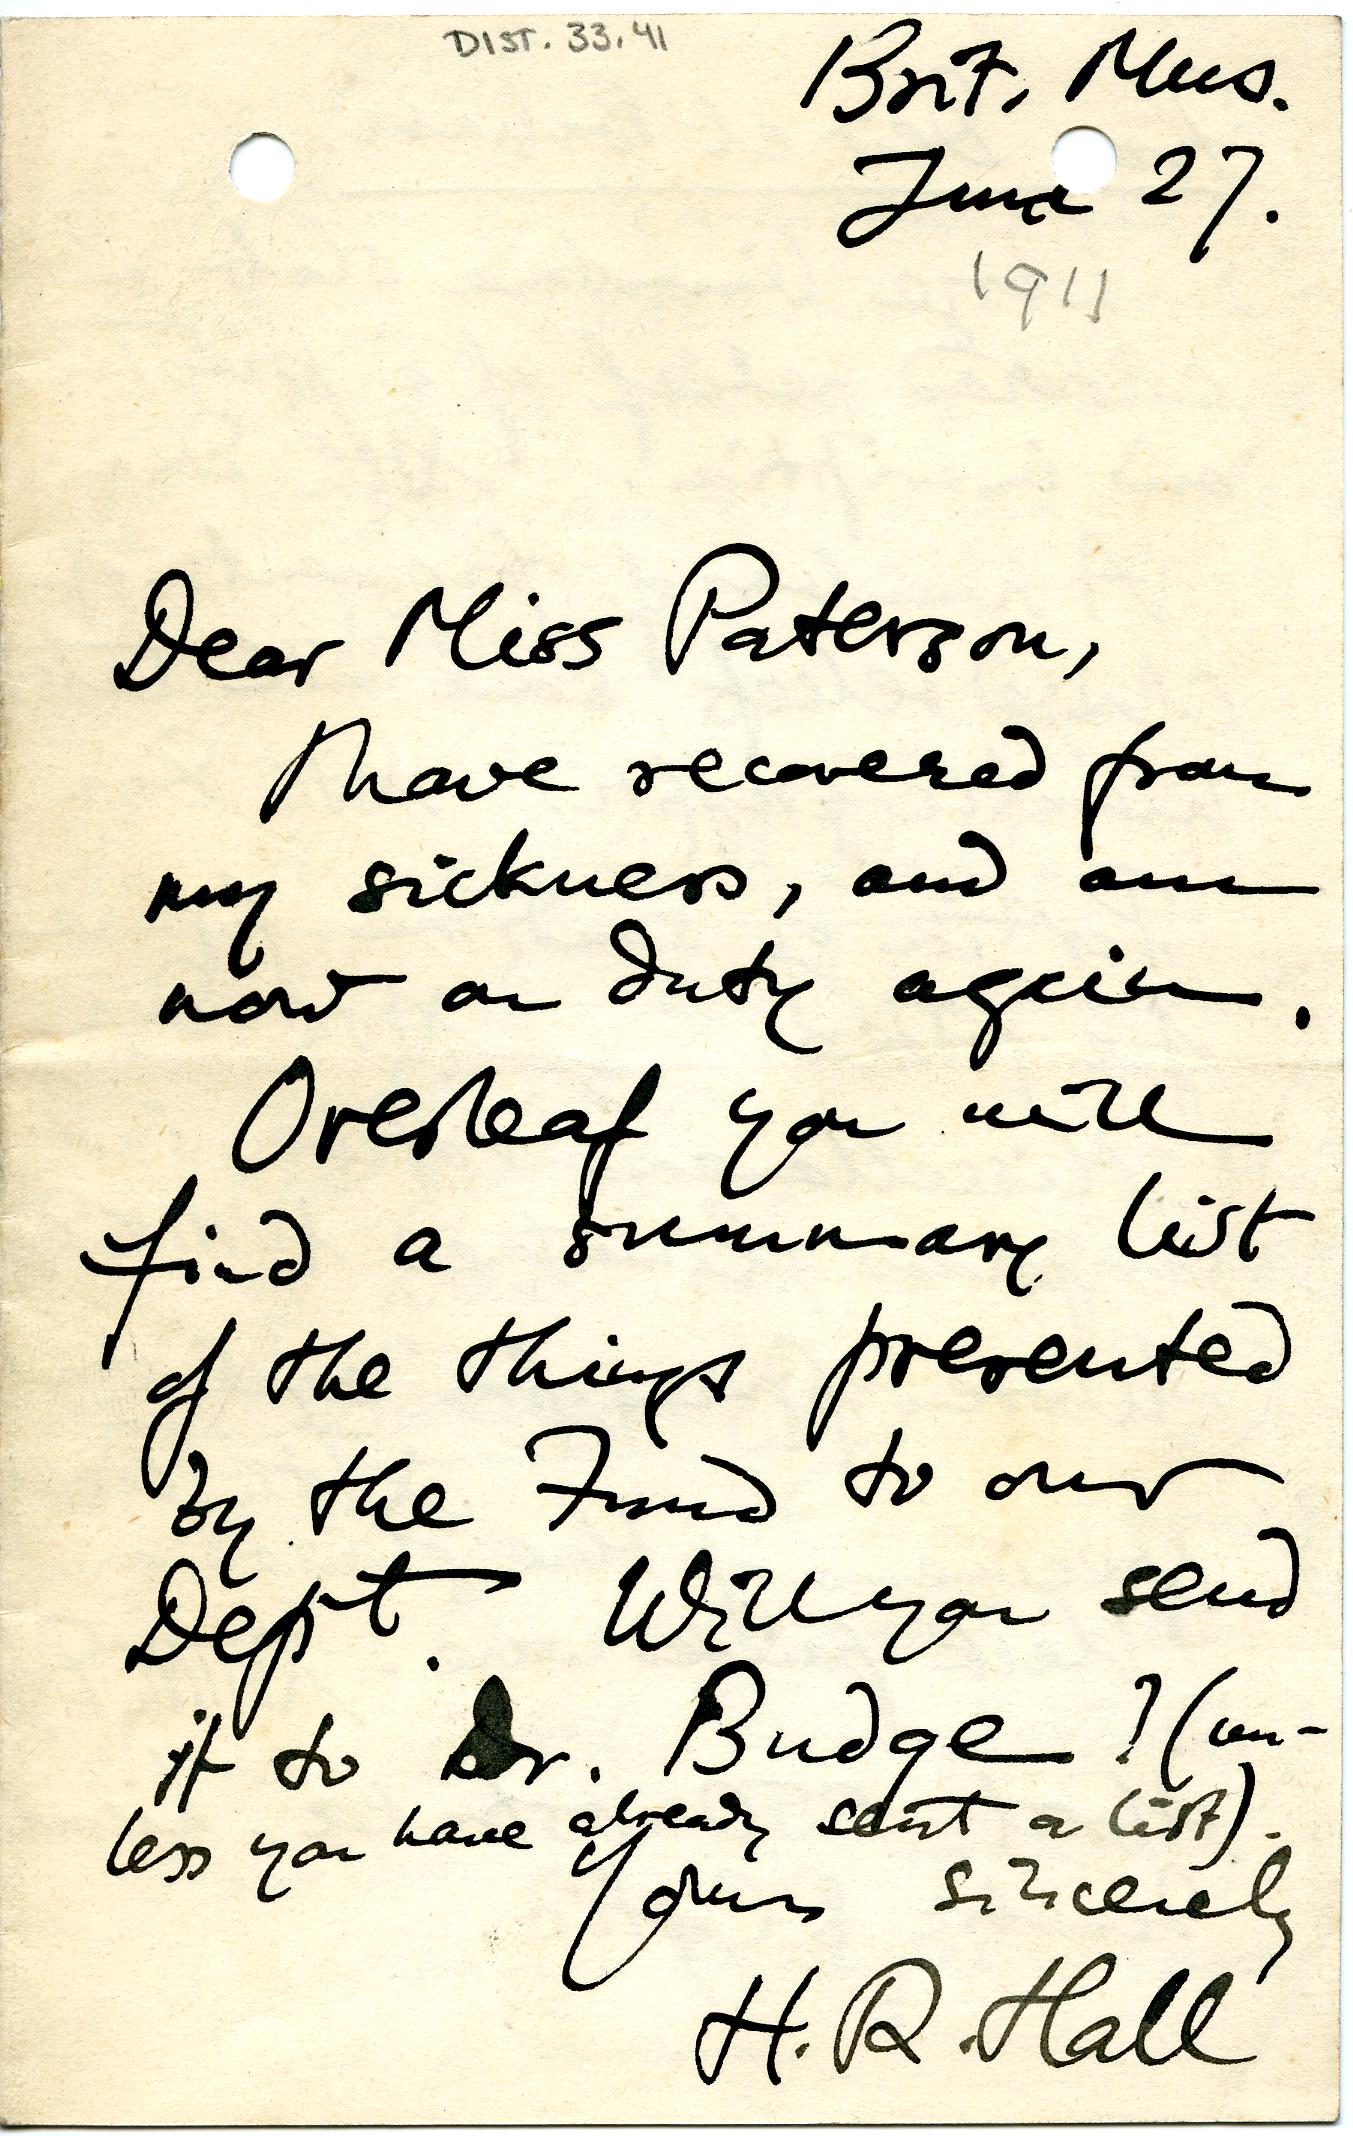 DIST. 33.41
Brit. Mus.
June 27.
1911
Dear Miss Paterson,
I have recovered from
my sickness, and am
now on duty again.
Overleaf you will
find a summary list
of the things presented
by the Fund to our
Dept. Will you send
it to Dr. Budge? (un-
less you have already sent a list).
Yours sincerely
H. R. Hall